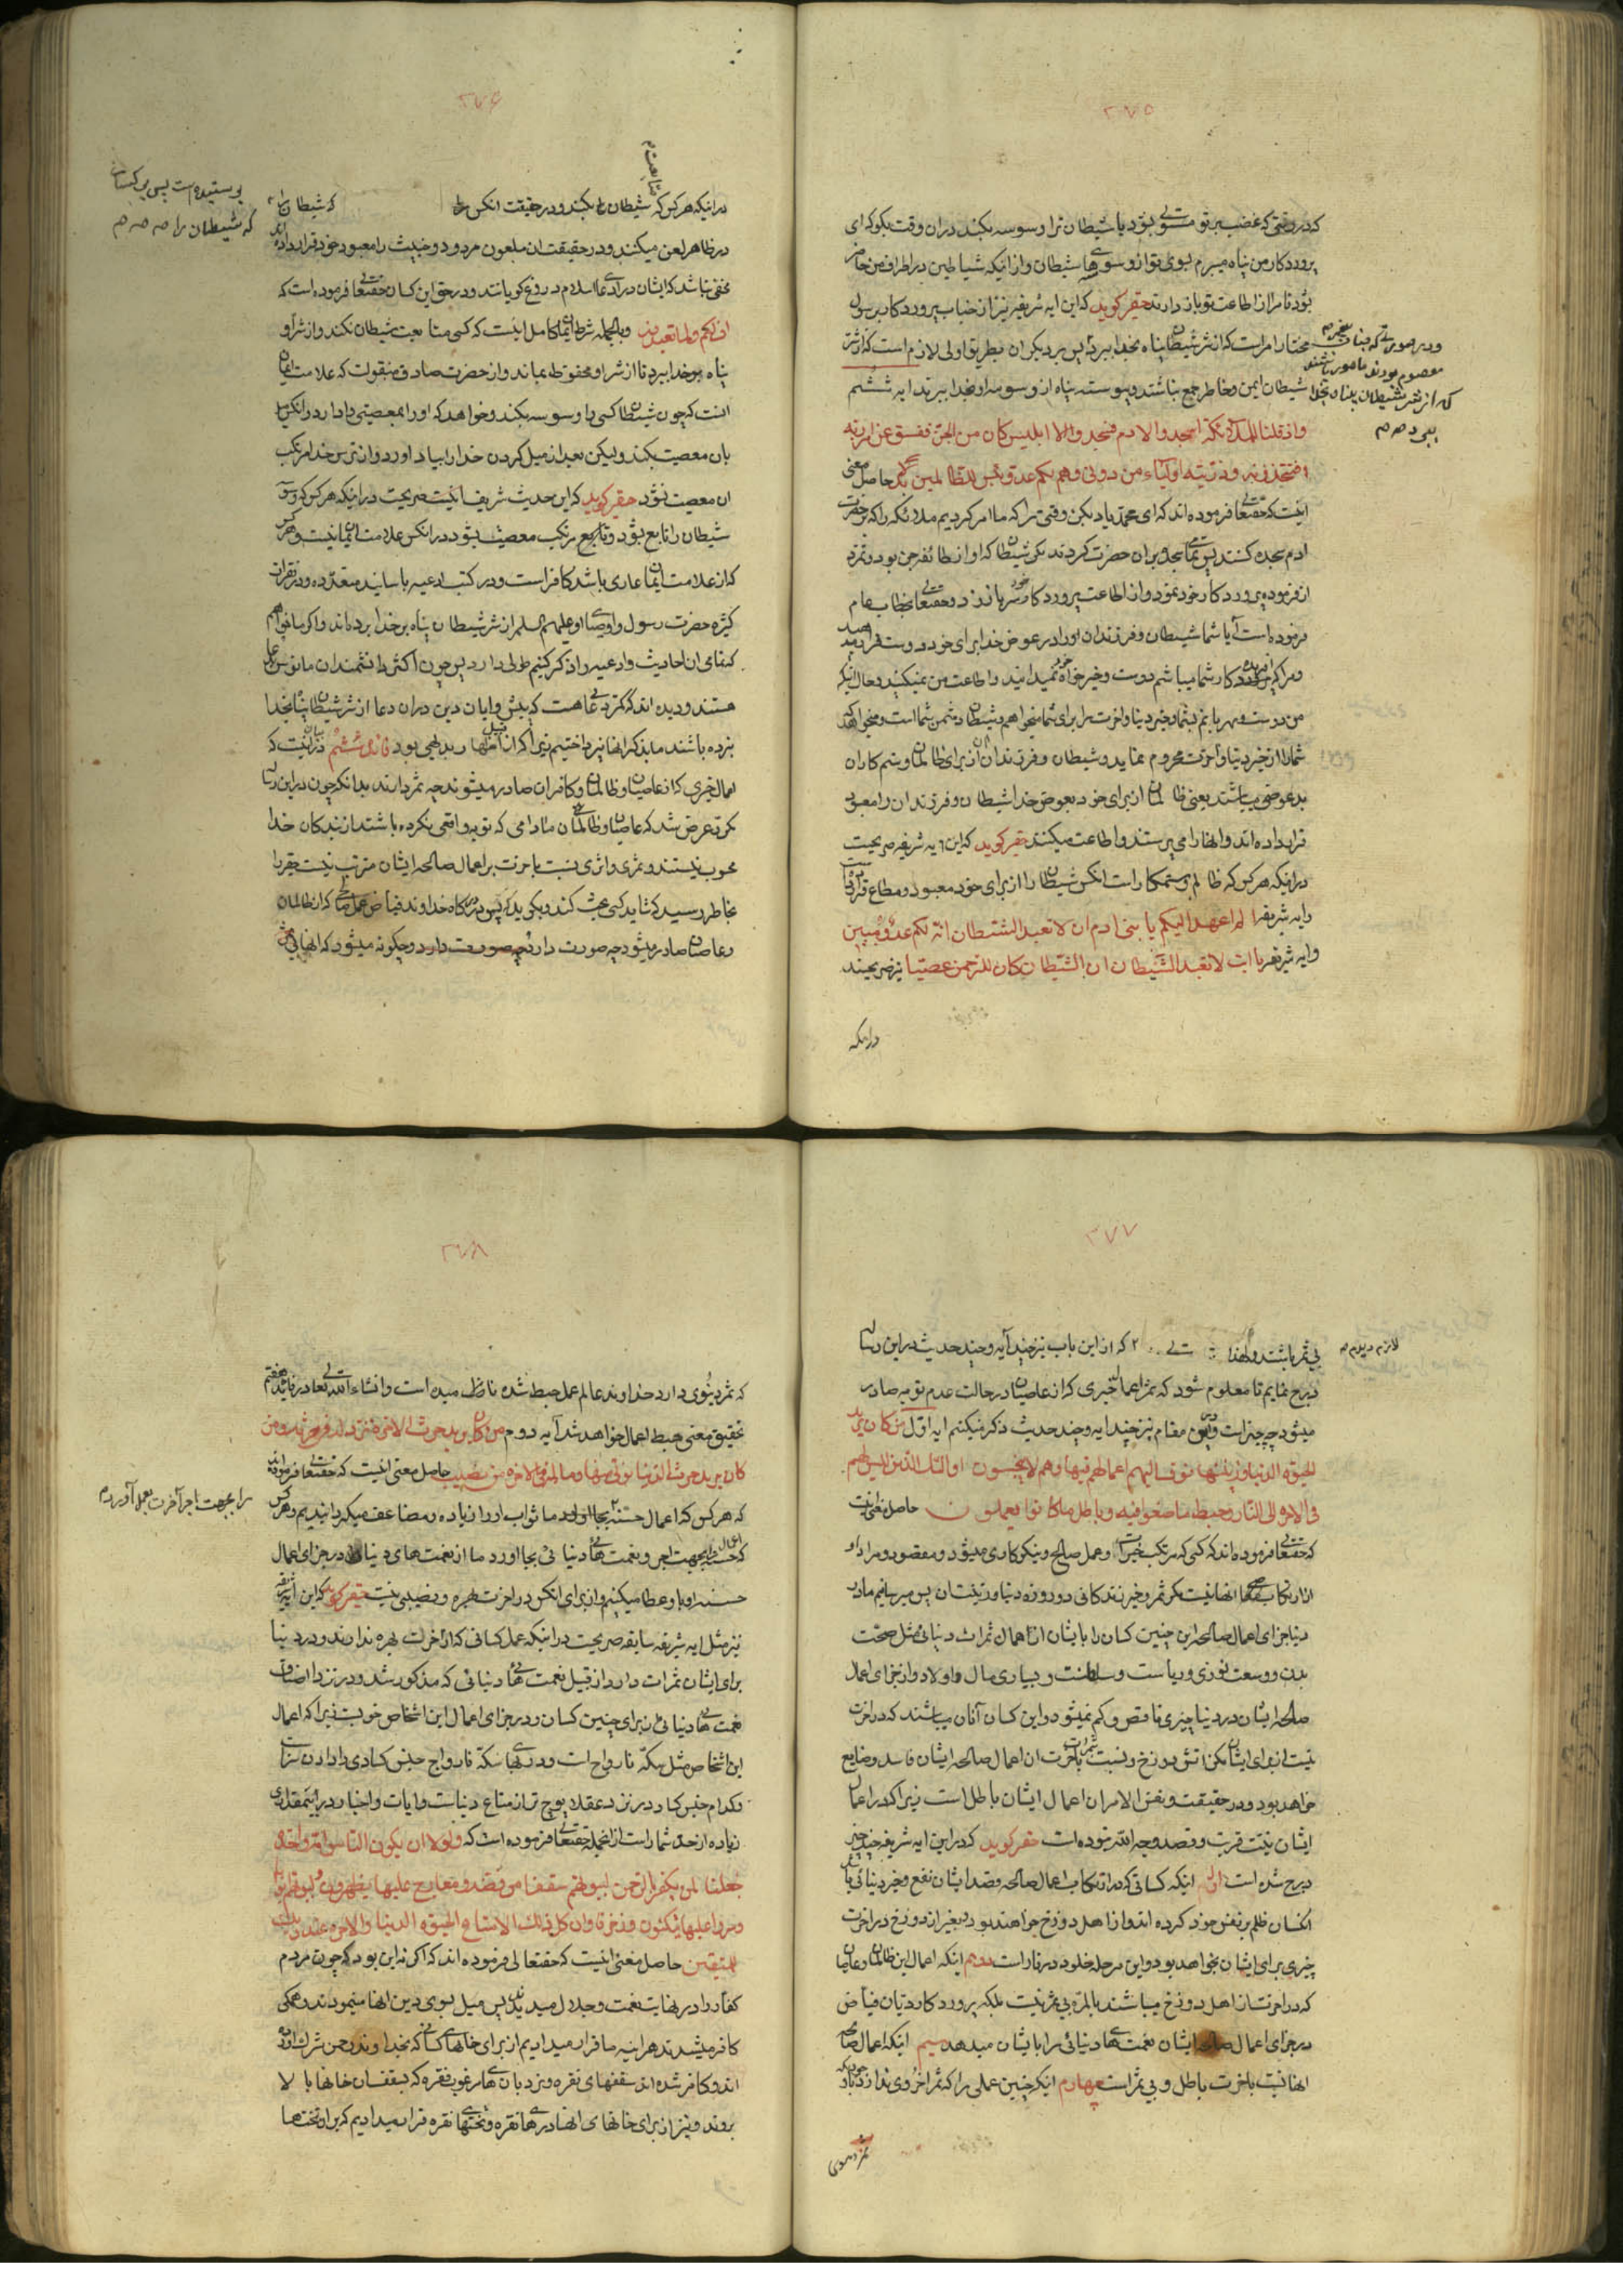 ۲۷۵
که در وقتی که غضب بر تو مستولی بشود یا شیطان ترا وسوسه بکند در ان وقت بگو که ای
پروردکار من پناه میبرم بسوی تو از وسوسهای شیطان و از اینکه شیاطین در اطراف من حاضر
بشوند تا مرا از اطاعت تو باز دارند حقیر کوید که این ایه شریفه نیز از جناب پروردکار برسول
مختار امر است که از شر شیطان پناه بخدا ببرد پس بر دیکران بطریق اولی لازم است که از شر
و در صورتی که جناب پیغمبر
معصوم بودند مامور باشند
که از شر شیطان پناه بخدا
ببرد
شیطان ایمن و خاطر جمع نباشند و پیوسته پناه از وسوسه او بخدا ببرند ایه ششم
واذ قلنا للملائکة اسجدوا لادم فسجدوا الا ابلیس کان من الجن ففسق عن امر ربه
افتتخذونه و ذریته اولیاء من دونی وهم لکم عدو بئس للظالمین بدلا حاصل معنی
اینست که حقتعالی فرموده اند که ای محمد یاد بکن وقتی را که ما امر کردیم ملائکه را که حضرت
ادم سجده کنند پس تمامی سجده بر ان حضرت کردند مکر شیطان که او از طائفه جن بود و تمرد
از فرموده پروردکار خود نمود و از اطاعت پروردکار خود سر باز زد و حقتعالی بخطاب عام
فرموده است آیا شما شیطان و فرزندان او را در عوض خدا برای خود دوست قرار میدهید
و مرا که افریدکار شما میباشم دوست و خیرخواه خود نمیدانید و اطاعت من نمیکنید و حال آنکه
من دوست و مهربانم بشما و خیر دنیا و اخرت را برای شما میخواهم و شیطان دشمن شما است و میخواهد که
شما را از خیر دنیا و آخرت محروم نماید و شیطان و فرزندان آن از برای ظالمان و ستم کاران
بد عوضی میباشند یعنی ظالمان از برای خود بعوض خدا شیطان و فرزندان را معبود
قرار داده اند و انها را می پرستند و اطاعت میکنند حقیر کوید که این ایه شریفه صریحست
در اینکه هر کس که ظالم و ستمکار است انکس شیطان را از برای خود معبود و مطاع قرار داده است
و ایه شریفه الم اعهد الیکم یا بنی ادم ان لا تعبدوا الشیطان انه لکم عدو مبین
و ایه شریفه یا ابت لا تعبد الشیطان ان الشیطان کان للرحمن عصیا نیز صریحند
در اینکه
۲۷۶
در اینکه هر کس که شیطان را بکند و در حقیقت انکس را که شیطان را
متابعت
پرستیده است پس کسیان
که شیطان را
در ظاهر لعن میکنند و در حقیقت ان ملعون مردود و خبیث را معبود خود قرار داده اند
مخفی نباشد که ایشان در ادعا اسلام دروغ کویانند و در حق این کسان حقتعالی فرموده است که
اف لکم و لما تعبدون و بالجمله شرط ایمان کامل اینست که کسی متابعت شیطان نکند و از شر او
پناه بر خدا ببرد تا از شر او محفوظ بماند و از حضرت صادق منقولست که علامت ایمان
اینست که چون شیطان کسی را وسوسه بکند و خواهد که او را بمعصیتی وادارد و انکس میل
بان معصیت بکند ولیکن بعد از میل کردن خدا را بیاد اورد و از ترس خدا مرتکب
ان معصیت نشود حقیر کوید که این حدیث شریف نیز صریحست در اینکه هر کس که وسوسه
شیطان را تابع بشود و تابع مرتکب معصیت بشود در انکس علامت ایمان نیست و هر کس
که از علامت ایمان عاری باشد کافر است و در کتب ادعیه باسانید متعدده و در فقرات
کثیره حضرت رسول و اوصیای او علیهم السلم از شر شیطان پناه بر خدا برده اند و اکر ما بخواهم
که تمامی ان احادیث و ادعیه را ذکر کنیم طولی دارد پس چون اکثر دانشمندان مانوس بدعا
هستند و دیده اند که کمتر دعائی هست که پیشوایان دین در ان دعا از شر شیطان پناه بخدا
نبرده باشند ما بذکر انها نپرداختیم زیرا که از قبیل امرها بدیهی بود فائده ششم در بیان اینست که
اعمال خیری که از عاصیان و ظالمان و کافران صادر میشوند چه ثمر دارند بدانکه چون در این رساله
مکرر عرض شد که عاصیان و ظالمان مادامی که توبه واقعی نکرده باشند از بندکان خدا
محسوب نیستند و ثمری و اثری نسبت باخرت بر اعمال صالحه ایشان مترتب نیست حقیر را
بخاطر رسید که شاید کسی بحث کند و بکوید که پس در درکاه خداوند فیاض عمل صالحی که از ظالمان
و عاصیان صادر میشود چه صورت دارد و چکونه میشود که انها بی
۲۷۷
بی ثمر باشند و لهذا
لازم دیدم
که از این باب نیز چند آیه و چند حدیث در این رساله
درج نمایم تا معلوم شود که ثمر اعمال خیری که از عاصیان در حالت عدم توبه صادر
میشود چه چیز است و در این مقام نیز چند ایه و چند حدیث ذکر میکنم ایه اول من کان یرید
الحیوة الدنیا و زینتها نوف الیهم اعمالهم فیها وهم لا یبخسون اولئک الذین لیس لهم
فی الاخرة الا النار و حبط ما صنعوا فیه و باطل ما کانوا یعملون حاصل معنی اینست
که حقتعالی فرموده اند که کسی که مرتکب خیرات و عمل صالح و نیکوکاری میشود و مقصود و مراد او
از ارتکاب انها نیست مکر ثمر و خیر زندکانی دو روزه دنیا و زینت ان پس میرسانیم ما در
دنیا جزای اعمال صالحه این چنین کسان را بایشان از اعمال ثمرات دنیائی مثل صحت
بدن و وسعت روزی و ریاست و سلطنت و بسیاری مال و اولاد و از جزای اعمال
صالحه ایشان در دنیا چیزی ناقص و کم نمیشود و این کسان آنان میباشند که در اخرت
نیست از برای ایشان مکر اتش دوزخ و نسبت باخرت ثمرات ان اعمال صالحه ایشان فاسد و ضایع
خواهد بود و در حقیقت و نفس الامر ان اعمال ایشان باطل است زیرا که در اعمال
ایشان نیت قربت و قصد وجه الله نبوده است حقیر کوید که در این ایه شریفه چند چیز
درج شده است اول اینکه کسانی که در ارتکاب اعمال صالحه قصد ایشان نفع و خیر دنیائی باشد
انکسان ظلم بر نفس خود کرده اند و از اهل دوزخ خواهند بود و بغیر از دوزخ در اخرت
چیزی برای ایشان نخواهد بود و این مرحله خلود در نار است دوم اینکه اعمال این ظالمان و عاصیان
که در اخرت از اهل دوزخ میباشند بالمره بی ثمر نیست بلکه پروردکار دیان فیاض
در جزای اعمال صالحه ایشان نعمتهای دنیائی را بایشان میدهد سیم اینکه اعمال صالحه
انها نسبت باخرت باطل و بی ثمر است چهارم اینکه چنین عملی را که ثمر اخروی ندارد
ثمر دنیوی
۲۷۸
که ثمر دنیوی دارد خداوند عالم عمل حبط شده نامیده است و انشاء الله تعالی در فائده هفتم
تحقیق معنی حبط اعمال خواهد شد آیه دوم من کان یرید حرث الاخرة نزد له فی حرثه و من
کان یرید حرث الدنیا نؤته منها و ما له فی الاخرة من نصیب حاصل معنی اینست که حقتعالی فرموده اند
که هر کس که اعمال حسنه بجا اورد ما ثواب او را زیاده و مضاعف میکردانیم و هر کس
را بجهت اجر آخرت بعمل آورد
که اعمال حسنه را بجهت اجر و نعمتهای دنیائی بجا اورد ما از نعمت های دنیا در جزای اعمال
حسنه او باو عطا میکنیم و از برای انکس در اخرت بهره و نصیبی نیست حقیر کوید که این آیه شریفه
نیز مثل ایه شریفه سابقه صریحست در اینکه عمل کسانی که از اخرت بهره ندارند در دنیا
برای ایشان ثمرات دارد از قبیل نعمت های دنیائی که مذکور شد و در نزد انصاف
نعمت های دنیائی از برای چنین کسان در جزای اعمال این اشخاص خوبست زیرا که اعمال
این اشخاص مثل سکه نارواج است و در بهای سکه نارواج جنس کسادی را دادن سزا است
و کدام جنس کساد در نزد عقلا پوچ تر از متاع دنیاست و ایات و اخبار در اینمقدمه
زیاده از حد شمار است از انجمله حقتعالی فرموده است که و لولا ان یکون الناس امة واحدة
لجعلنا لمن یکفر بالرحمن لبیوتهم سقفا من فضة و معارج علیها یظهرون و لبیوتهم ابوابا
و سررا علیها یتکئون و زخرفا و ان کل ذلک لما متاع الحیوة الدنیا و الاخرة عند ربک
للمتقین حاصل معنی اینست که حقتعالی فرموده اند که اکر نه این بود که چون مردم
کفار را در نهایت نعمت و جلال میدیدند پس میل بسوی دین انها مینمودند و همکی
کافر میشدند هر اینه ما قرار میدادیم از برای خانهای کسانی که بخداوند رحمن شرک اورده
اند و کافر شده اند سقفهای نقره و نردبان های مرغوب نقره که بسقف ان خانها بالا
بروند و نیز از برای خانهای انها درهای نقره و تختهای نقره قرار میدادیم که بر ان تختها